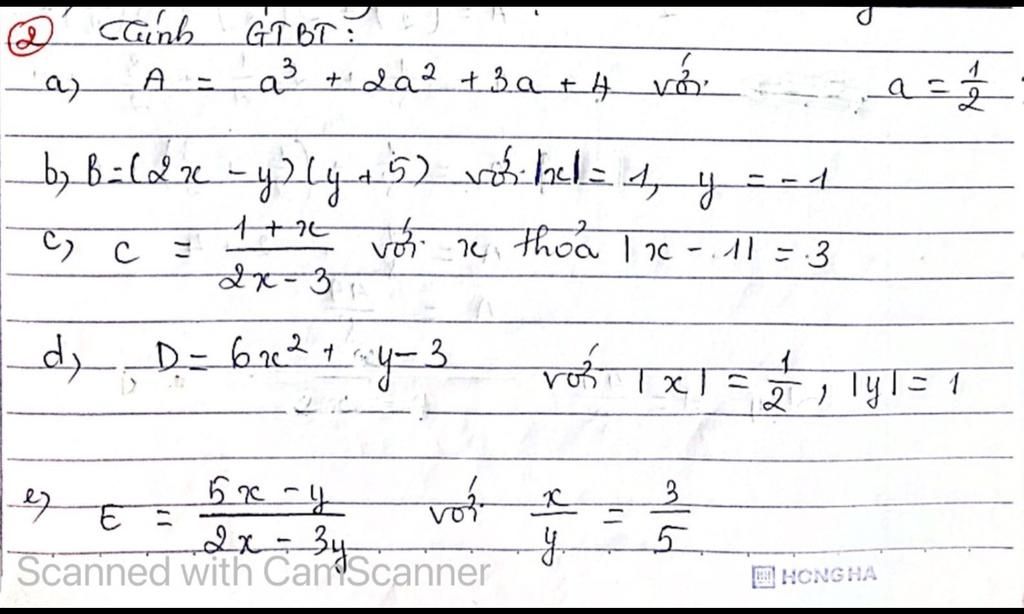 ② Tính GTBT:
a) A = a³ + 2a² + 3a + 4 với a = 1/2
b) B = (2x - y)(y + 5) với |x| = 1, y = -1
c) C = (1 + x)/(2x - 3) với x thoả |x - 1| = 3
d) D = 6x² + y - 3 với |x| = 1/2, |y| = 1
e) E = (5x - y)/(2x - 3y) với x/y = 3/5
Scanned with CamScanner
HONG HA